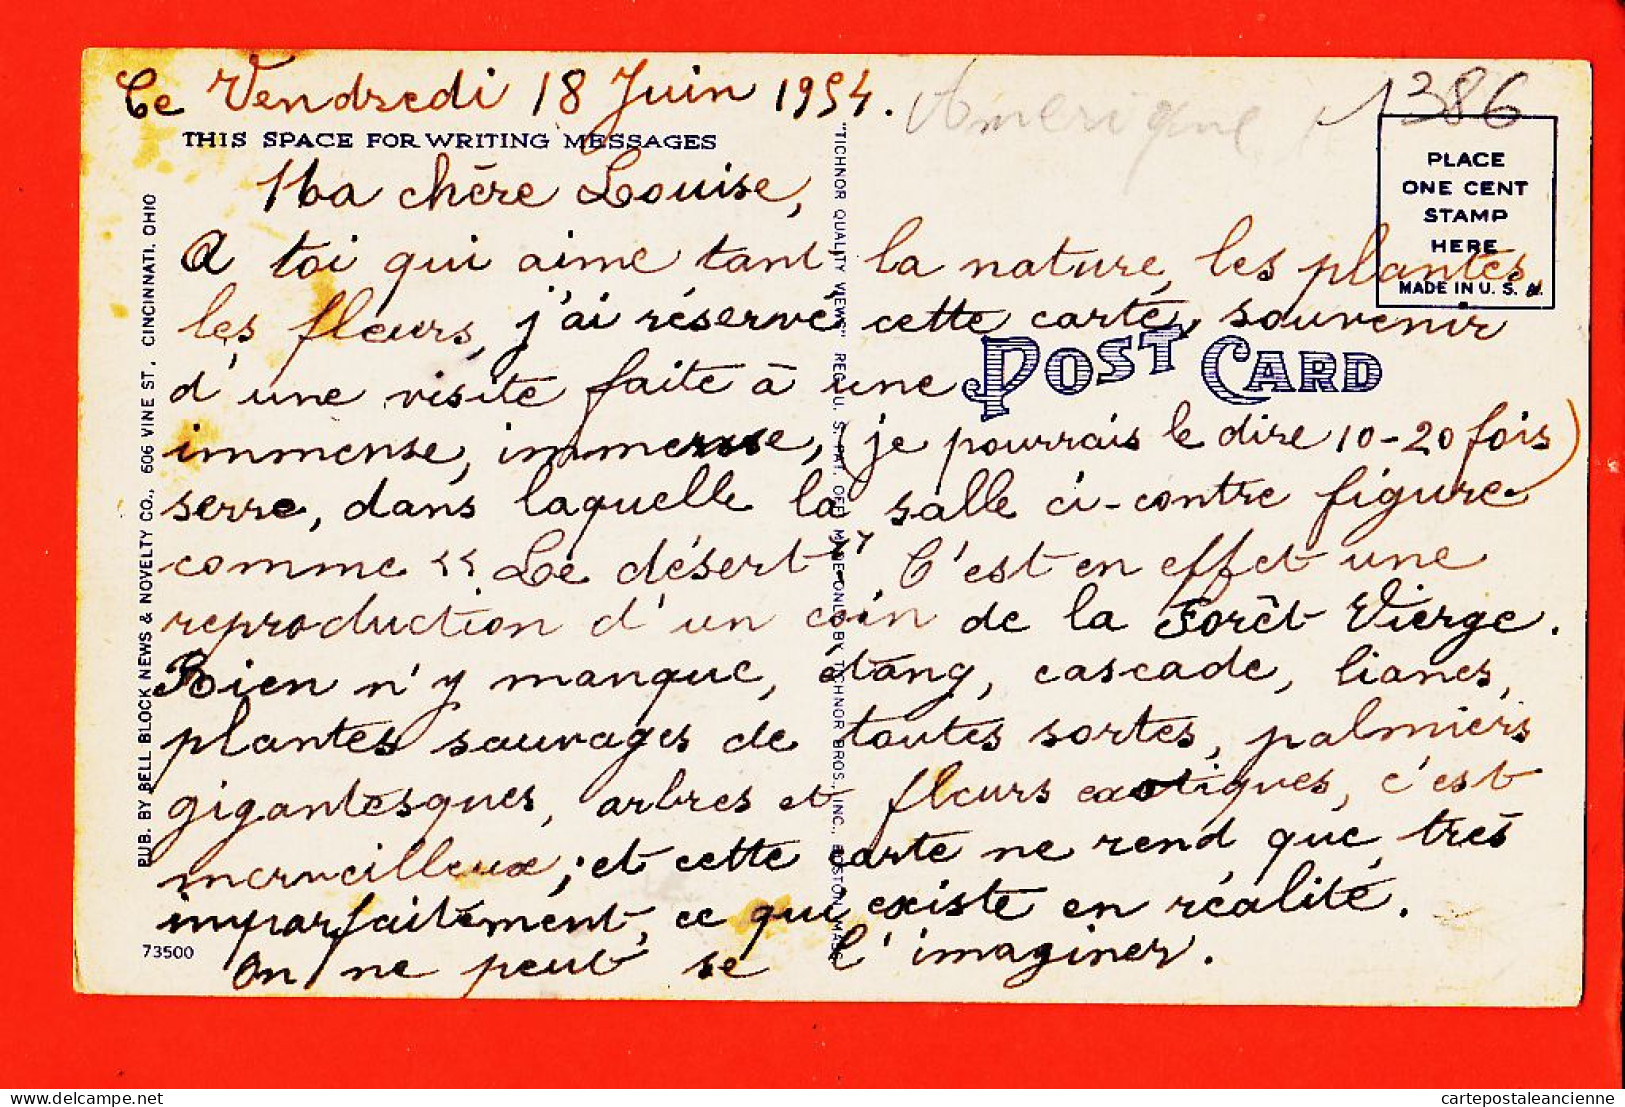 Ce Vendredi 18 Juin 1954.
Amérique
1386
THIS SPACE FOR WRITING MESSAGES
PLACE
ONE CENT
STAMP
HERE
MADE IN U. S. A.
POST CARD
Ma chère Louise,
A toi qui aime tant la nature, les plantes,
les fleurs, j'ai réservé cette carte, souvenir
d'une visite faite à une
immense, immense, (je pourrais le dire 10-20 fois)
serre, dans laquelle la salle ci-contre figure
comme « Le désert" C'est en effet une
reproduction d'un coin de la Forêt Vierge.
Rien n'y manque, étang, cascade, lianes,
plantes sauvages de toutes sortes, palmiers
gigantesques, arbres et fleurs exotiques, c'est
merveilleux; et cette carte ne rend que, très
imparfaitement, ce qui existe en réalité.
On ne peut se l'imaginer.
PUB. BY BELL BLOCK NEWS & NOVELTY CO., 606 VINE ST., CINCINNATI, OHIO
"TICHNOR QUALITY VIEWS" REG. U. S. PAT. OFF. MADE ONLY BY TICHNOR BROS., INC., BOSTON, MASS.
73500
delcampe.net
cartepostaleancienne